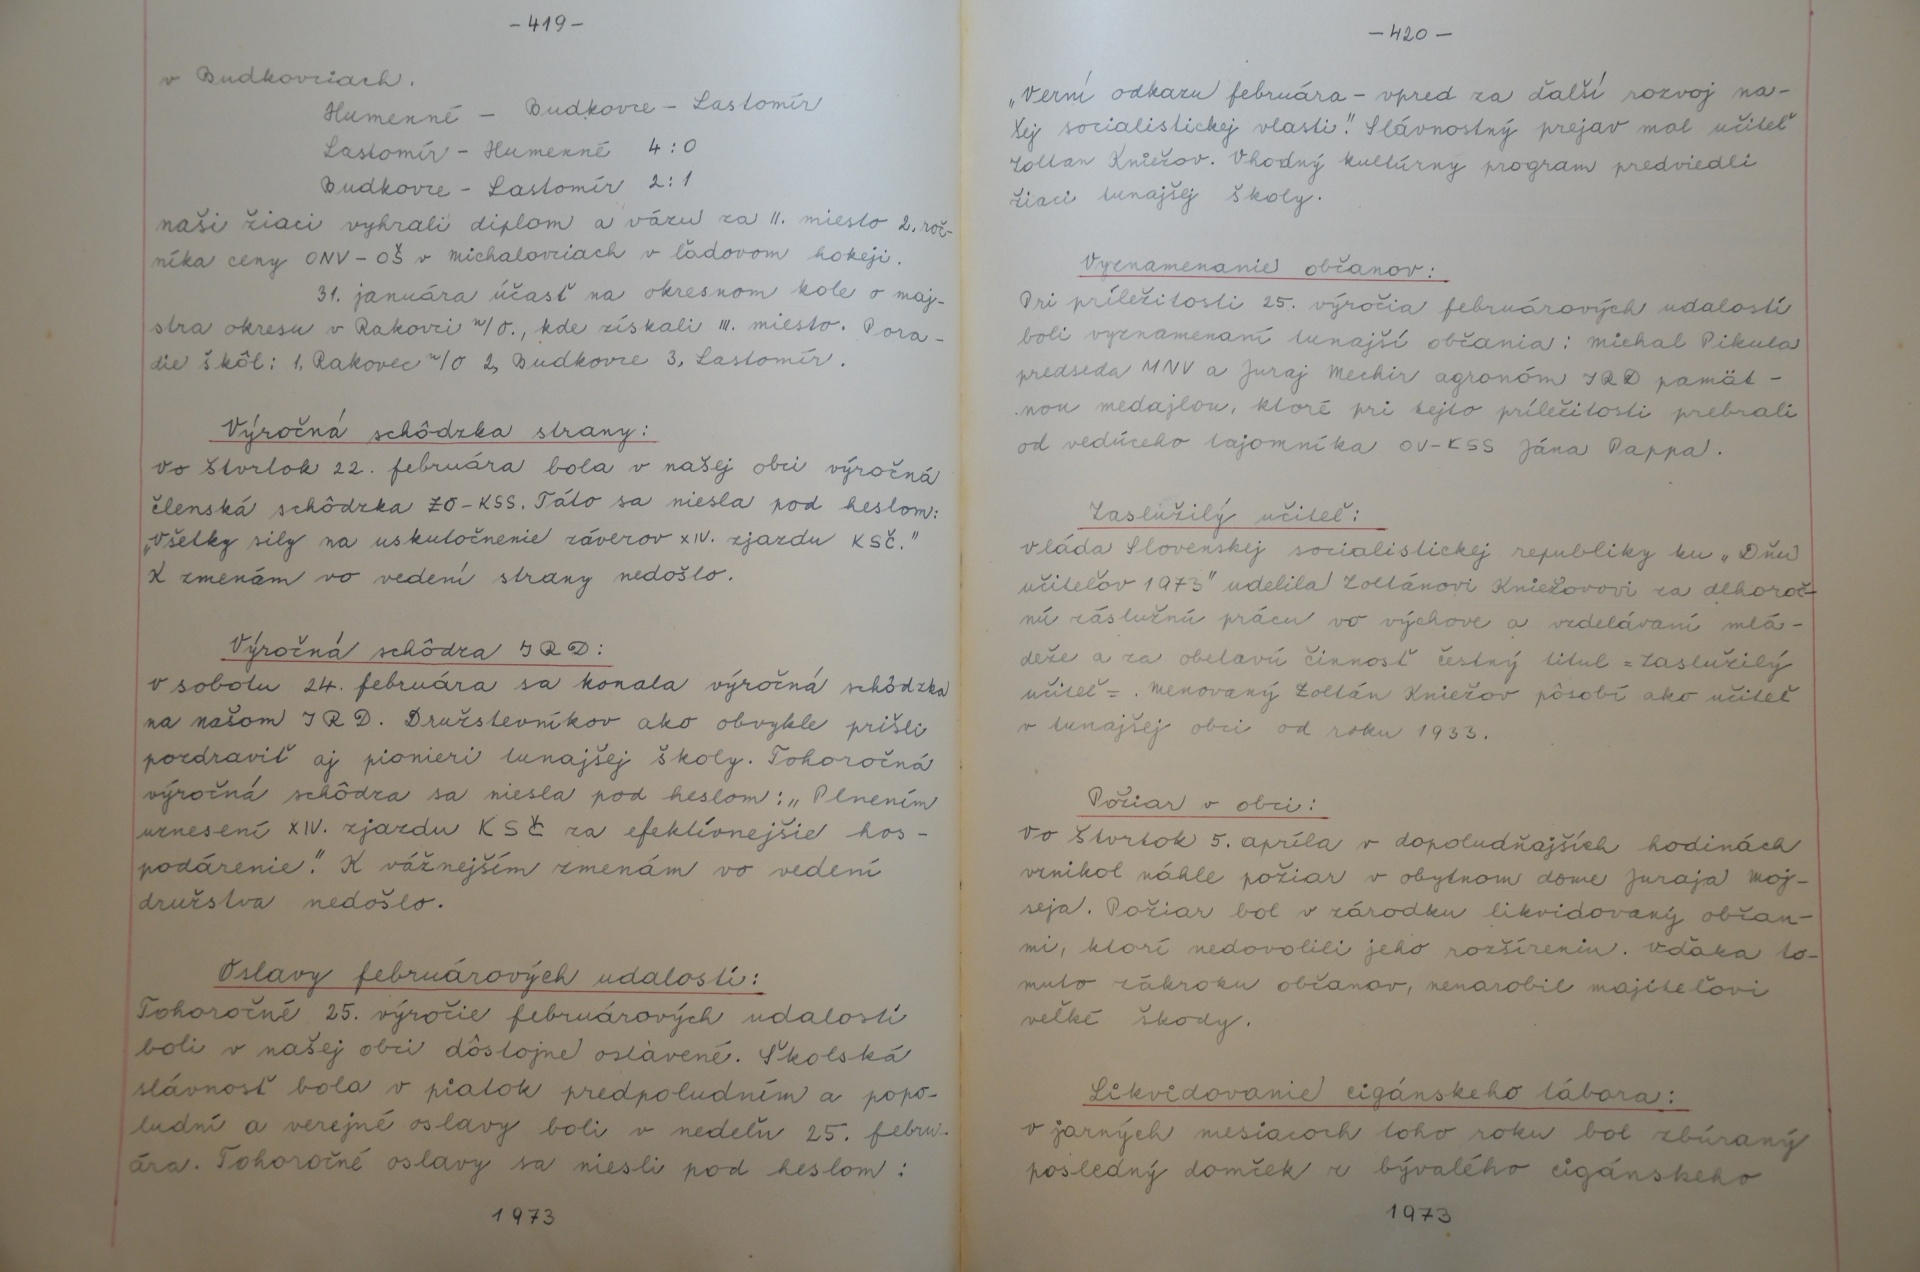 -419-
v Budkovciach.
Humenné - Budkovce - Lastomír
Lastomír - Humenné 4:0
Budkovce - Lastomír 2:1
naši žiaci vyhrali diplom a vázu za II. miesto 2. roč-
níka ceny ONV-OŠ v Michalovciach v ľadovom hokeji.
31. januára účasť na okresnom kole o maj-
stra okresu v Rakovci n/O., kde získali III. miesto. Pora-
die škôl: 1, Rakovec n/O 2, Budkovce 3, Lastomír.
Výročná schôdzka strany:
Vo štvrtok 22. februára bola v našej obci výročná
členská schôdzka ZO-KSS. Táto sa niesla pod heslom:
„Všetky sily na uskutočnenie záverov XIV. zjazdu KSČ."
K zmenám vo vedení strany nedošlo.
Výročná schôdza JRD:
V sobotu 24. februára sa konala výročná schôdzka
na našom JRD. Družstevníkov ako obvykle prišli
pozdraviť aj pionieri tunajšej školy. Tohoročná
výročná schôdza sa niesla pod heslom: „Plnením
uznesení XIV. zjazdu KSČ za efektívnejšie hos-
podárenie." K vážnejším zmenám vo vedení
družstva nedošlo.
Oslavy februárových udalostí:
Tohoročné 25. výročie februárových udalostí
boli v našej obci dôstojne oslávené. Školská
slávnosť bola v piatok predpoludním a popo-
ludní a verejné oslavy boli v nedeľu 25. febru-
ára. Tohoročné oslavy sa niesli pod heslom:
1973
-420-
„Verní odkazu februára - vpred za ďalší rozvoj na-
šej socialistickej vlasti." Slávnostný prejav mal učiteľ
Zoltan Kniežov. Vhodný kultúrny program predviedli
žiaci tunajšej školy.
Vyznamenanie občanov:
Pri príležitosti 25. výročia februárových udalostí
boli vyznamenaní tunajší občania: Michal Pikula
predseda MNV a Juraj Mechir agronóm JRD pamät-
nou medajlou, ktoré pri tejto príležitosti prebrali
od vedúceho tajomníka OV-KSS Jána Pappa.
Zaslúžilý učiteľ:
Vláda Slovenskej socialistickej republiky ku „Dňu
učiteľov 1973" udelila Zoltánovi Kniežovovi za dlhoroč-
nú záslužnú prácu vo výchove a vzdelávaní mlá-
deže a za obetavú činnosť čestný titul = Zaslúžilý
učiteľ =. Menovaný Zoltán Kniežov pôsobí ako učiteľ
v tunajšej obci od roku 1933.
Požiar v obci:
Vo štvrtok 5. apríla v dopoludňajších hodinách
vznikol náhle požiar v obytnom dome Juraja Moj-
seja. Požiar bol v zárodku likvidovaný občan-
mi, ktorí nedovolili jeho rozšíreniu. Vďaka to-
muto zákroku občanov, nenarobil majiteľovi
veľké škody.
Likvidovanie cigánskeho tábora:
V jarných mesiacoch toho roku bol zbúraný
posledný domček z bývalého cigánskeho
1973